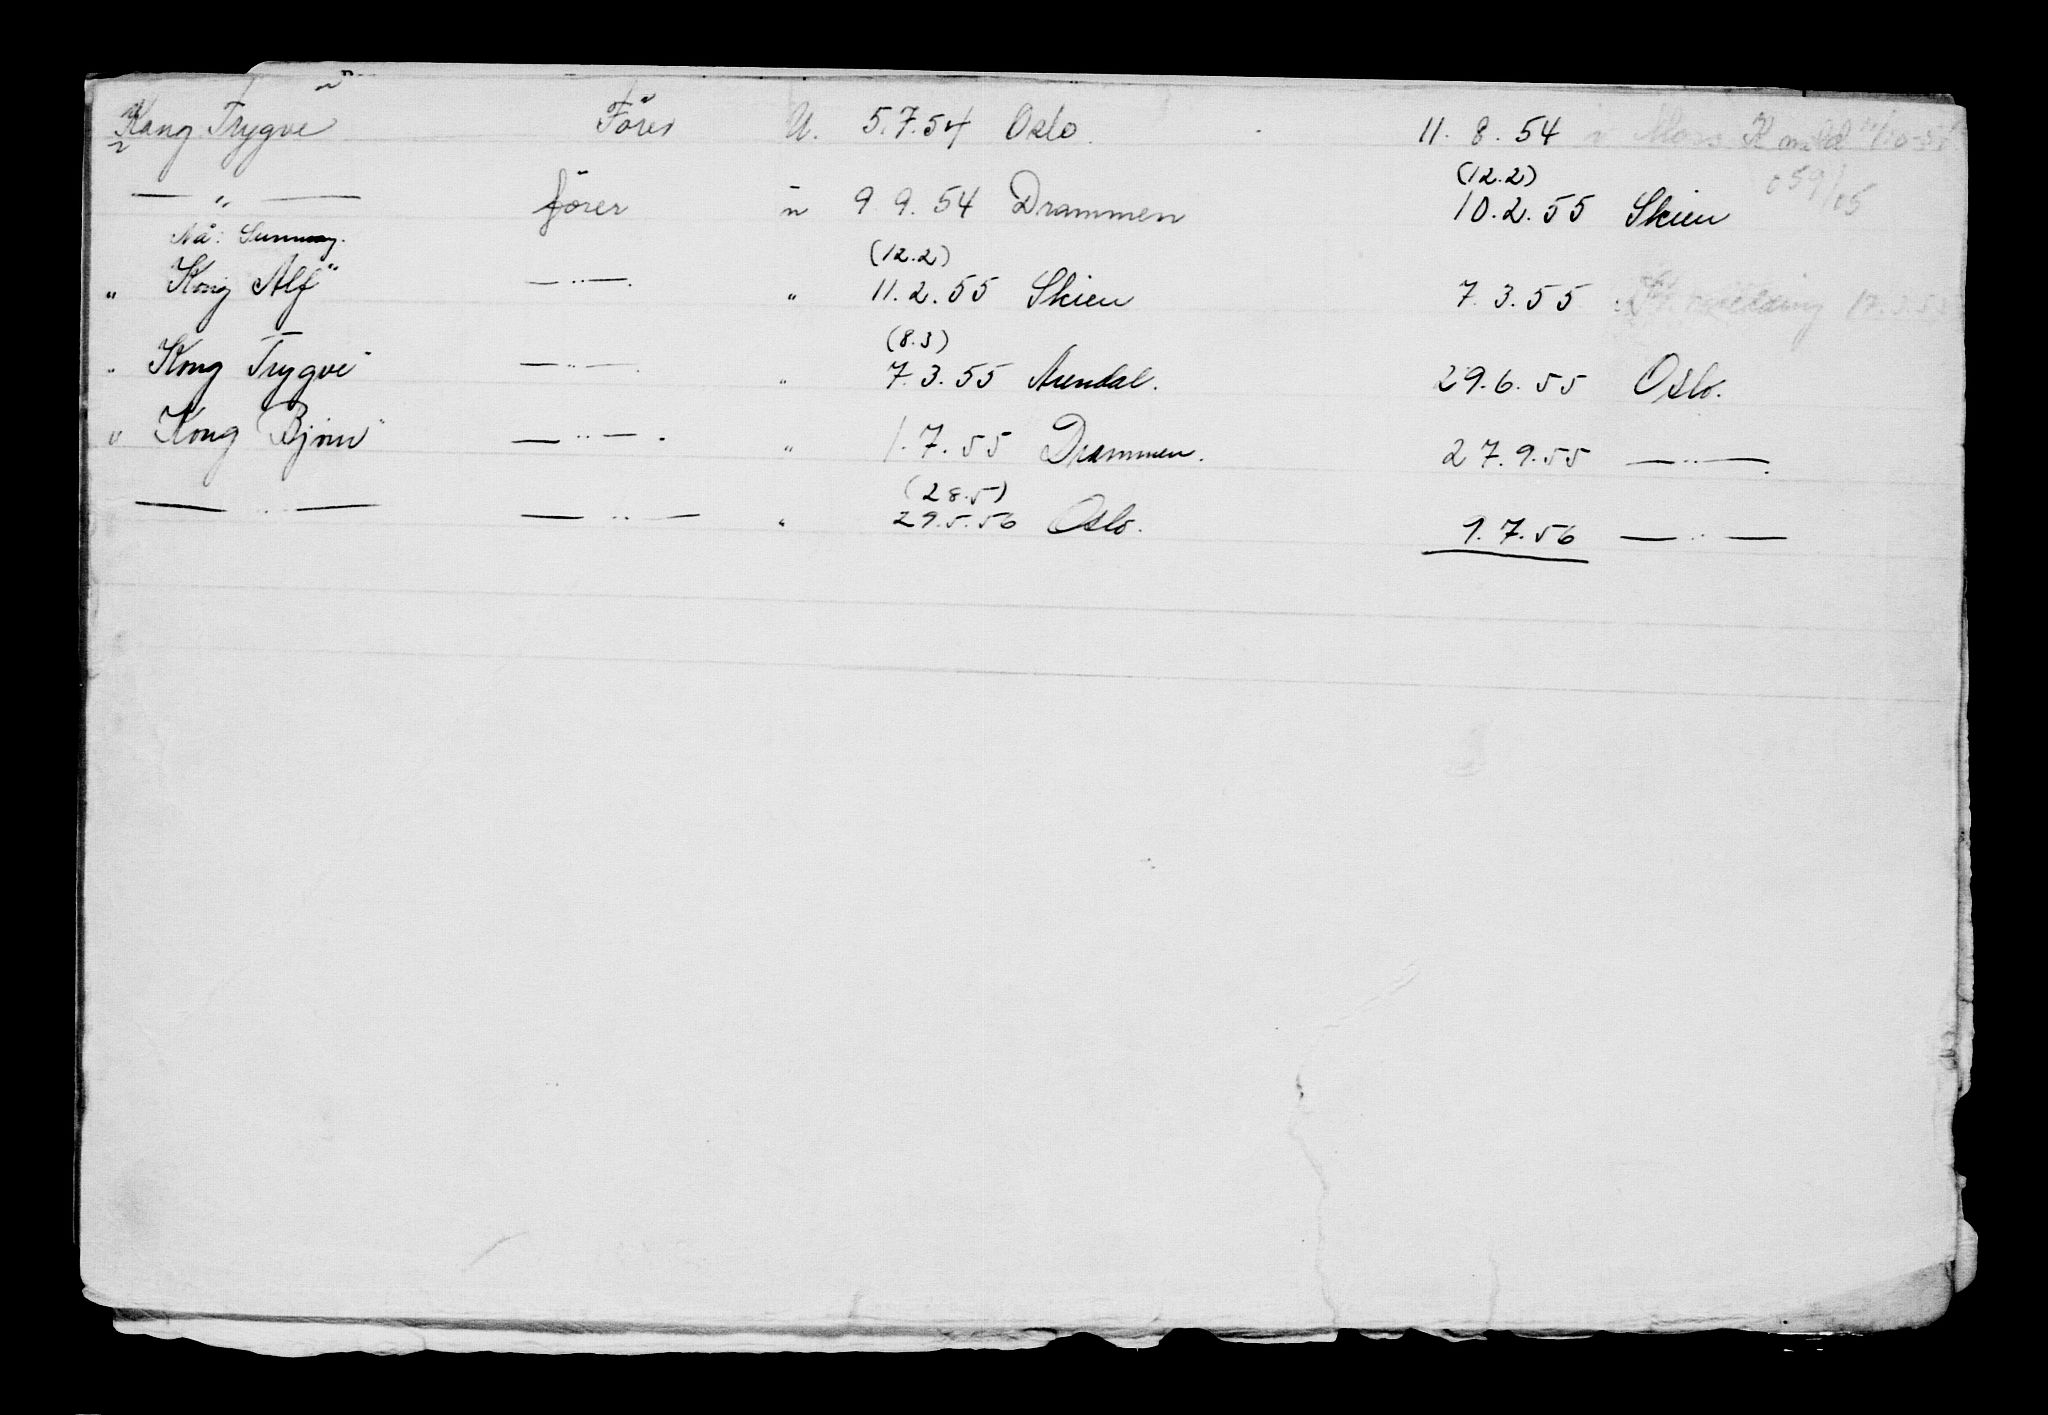 Kong Trygve Förer U. 5.7.54 Oslo. 11. 8. 54
(12.2)
— " — förer u 9 9. 54 Drammen 10.2.55 Skien
Nå: Sunnvag. (12.2)
" Kong Alf" — " —. " 11.2.55 Skien 7. 3. 55 17.3.55
(8.3)
" Kong Trygve" — " —. " 7.3.55 Arendal. 29.6.55 Oslo.
" Kong Bjørn" — " —. " 1.7.55 Drammen. 27.9.55 — " —.
(28.5)
— " — — " — " 29.5.56 Oslo. 1.7.56 — " —